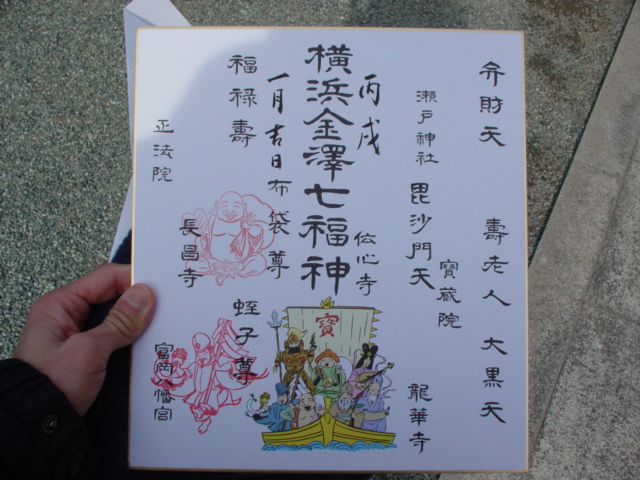 弁財天
瀬戸神社
壽老人
寶蔵院
大黒天
龍華寺
毘沙門天
伝心寺
丙戌
横浜金澤七福神
一月吉日
布袋尊
長昌寺
福禄壽
正法院
蛭子尊
富岡八幡宮
寶